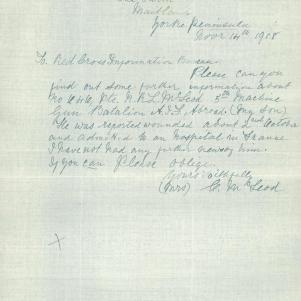 Maitland
Yorke Peninsula
Novr 14th 1918
To Red Cross Information Bureau
Please can you
find out some further information about
Pte. McLeod 5th Machine
Gun Batalion A.I.F. Abroad (my son)
He was reported wounded about 2nd October
and admitted to an hospital in France
I have not had any further news of him.
If you can Please oblige
Yours faithfully
(Mrs) McLeod